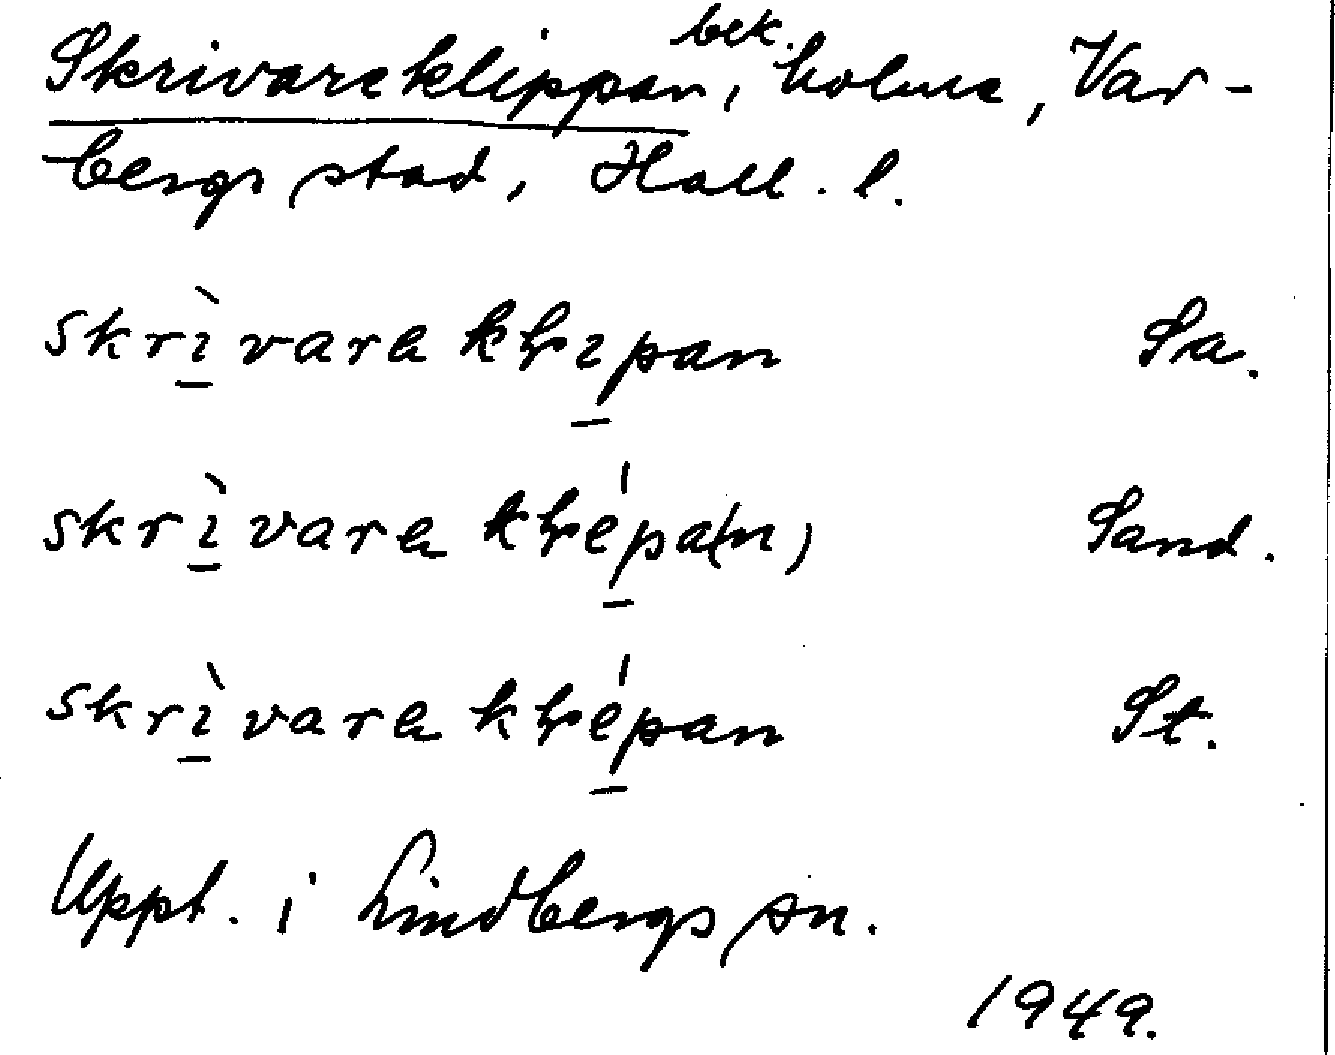 Skrivareklippan, bek. holme, Var-
bergs stad, Hall. l.
skrì̱varaklıp̱an Sa.
skrì̱varaklép̱a(n) Sand.
skrì̱varaklép̱an St.
Uppt. i Lindbergs sn.
1949.